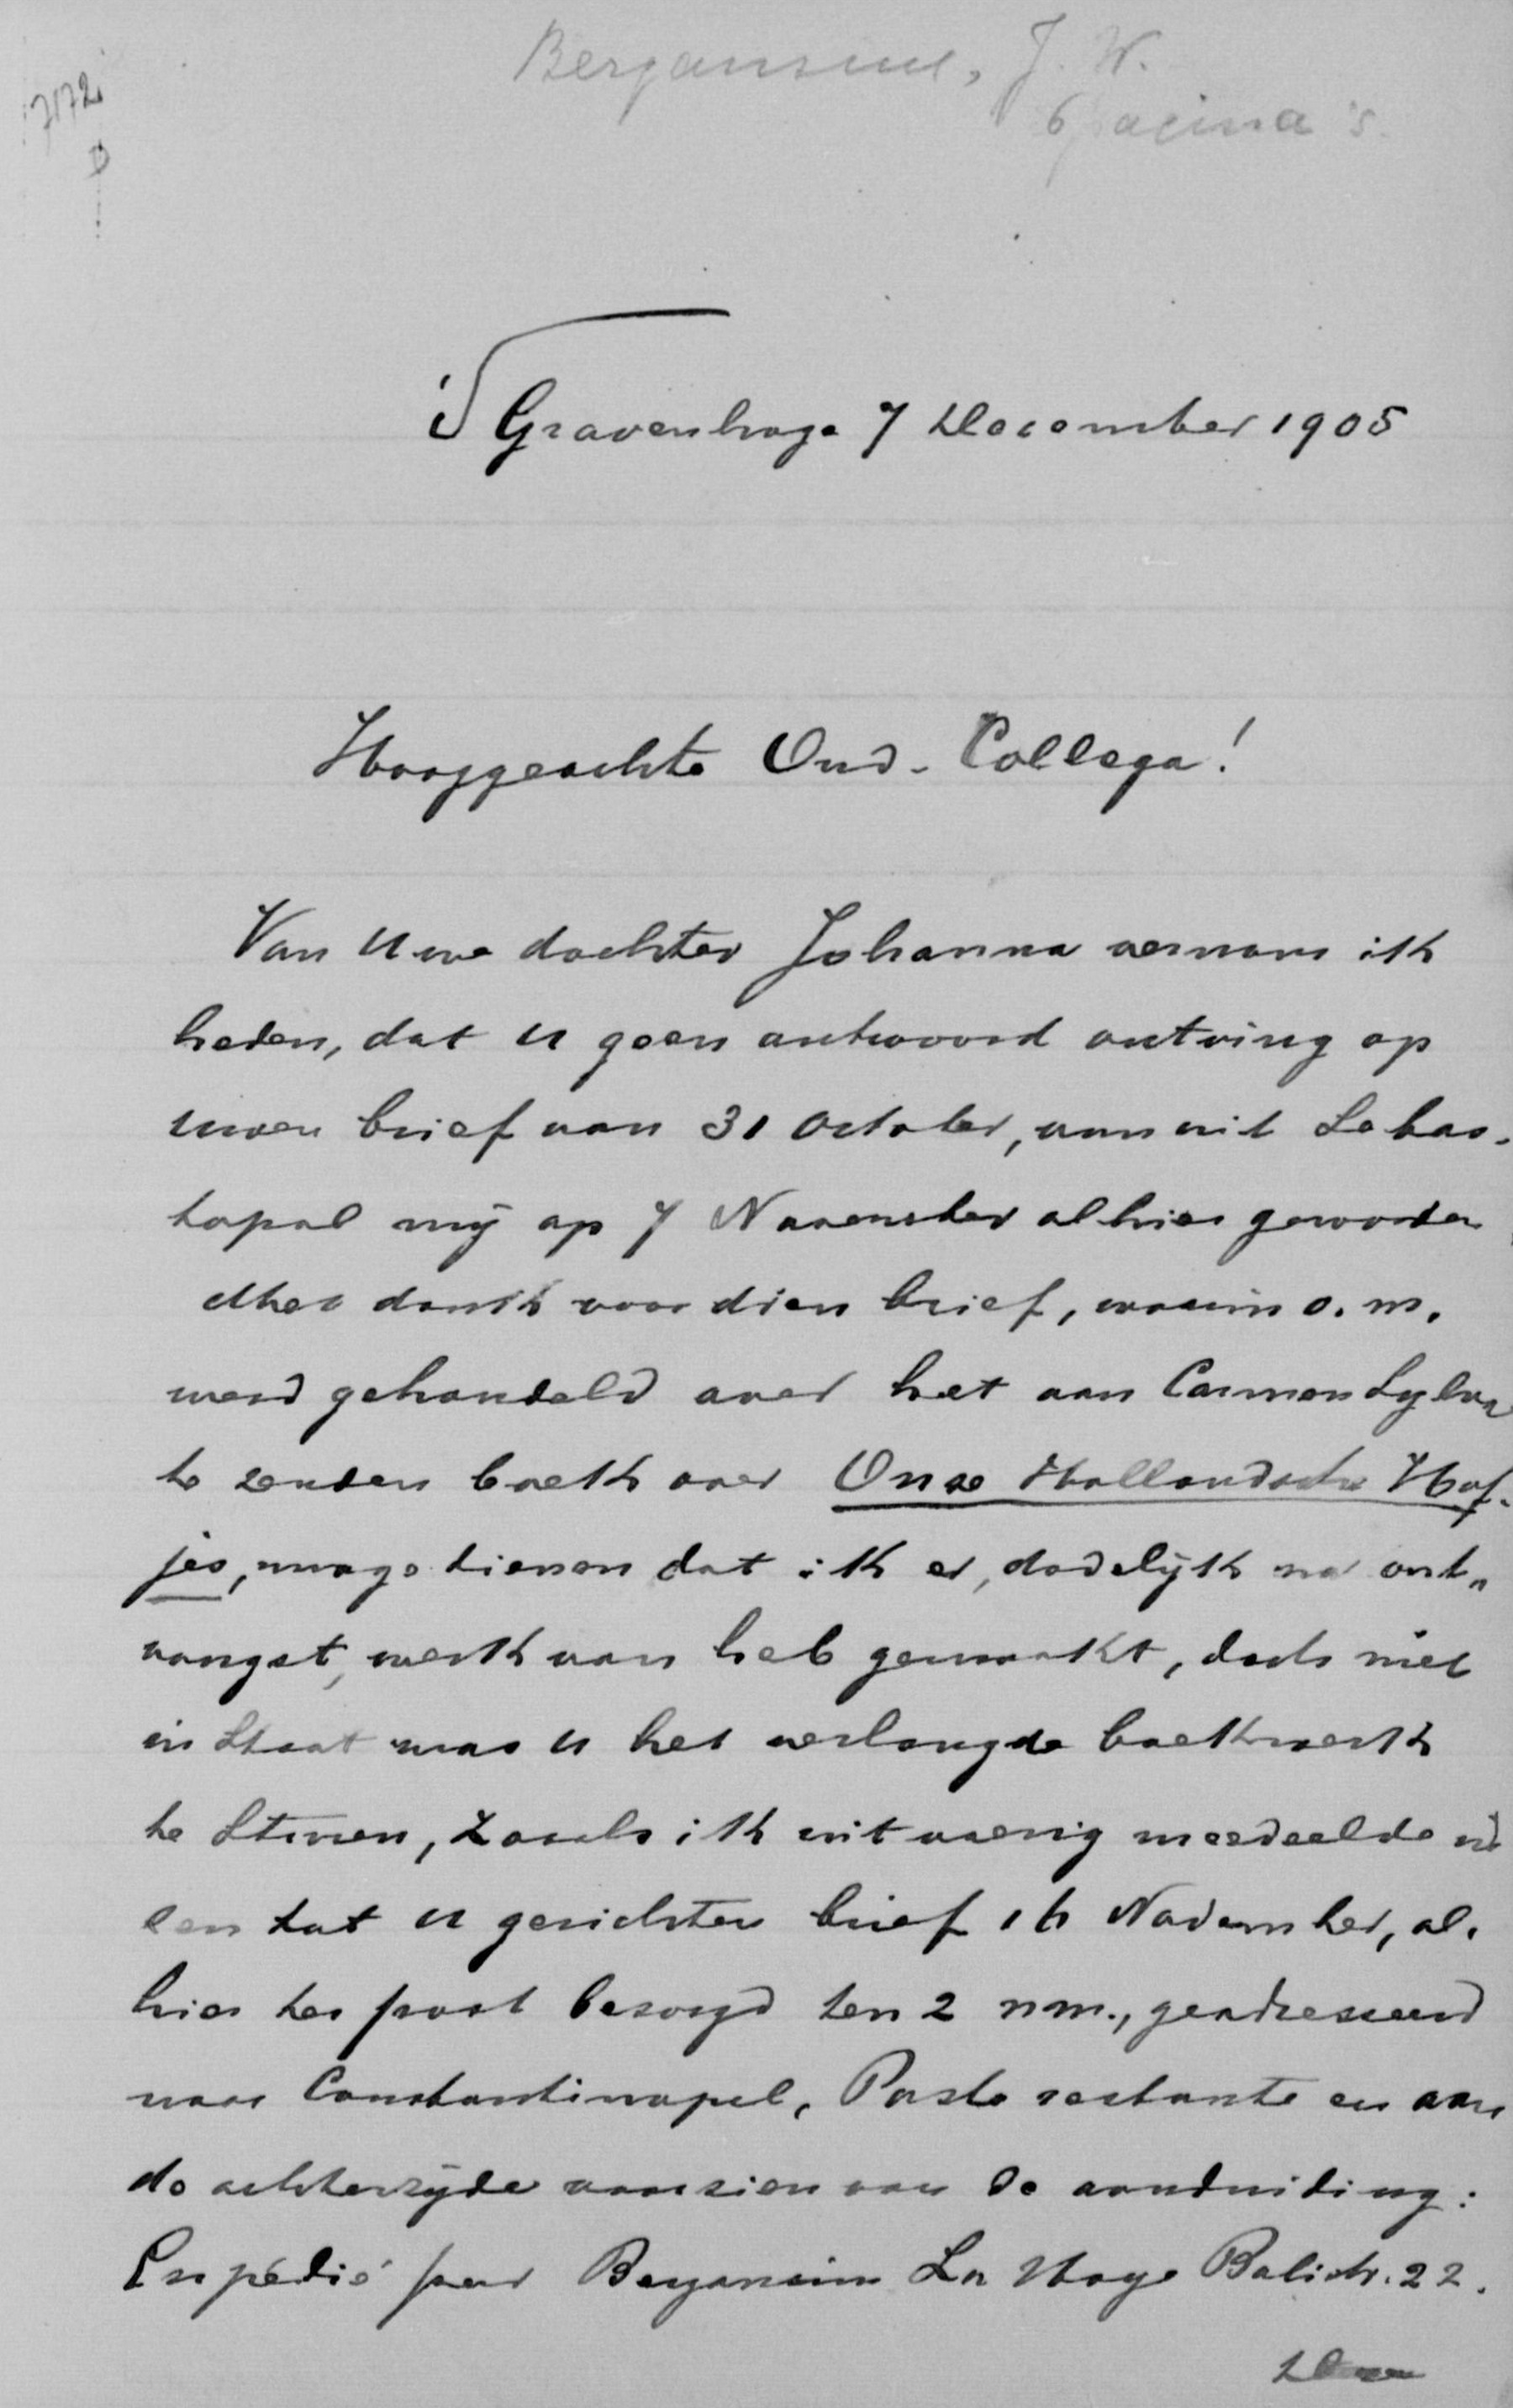 Bergansius, J. W.
6 pagina's.
7172
's Gravenhage 7 December 1905
Hooggeachte Oud-Collega!
Van Uwe dochter Johanna vernam ik
heden, dat U geen antwoord ontving op
uwen brief van 31 October, van uit Sebas-
topol mij op 7 November alhier geworden
Met dank voor dien brief, waarin o.m.
werd gehandeld over het aan Carmen Sylva
te zenden boek over Onze Hollandsche Hof-
jes, moge dienen dat ik er, dadelijk na ont-
vangst, werk van heb gemaakt, doch niet
in staat was U het verlangde boekwerk
te sturen, zooals ik uitvoerig meedeelde in
een tot U gerichten brief 16 November, al-
hier ter post bezorgd ten 2 nm., geadresseerd
naar Constantinopel, Poste restante en aan
de achterzijde voorzien van de aanduiding:
Expédié par Bergansius La Haye Balistr. 22.